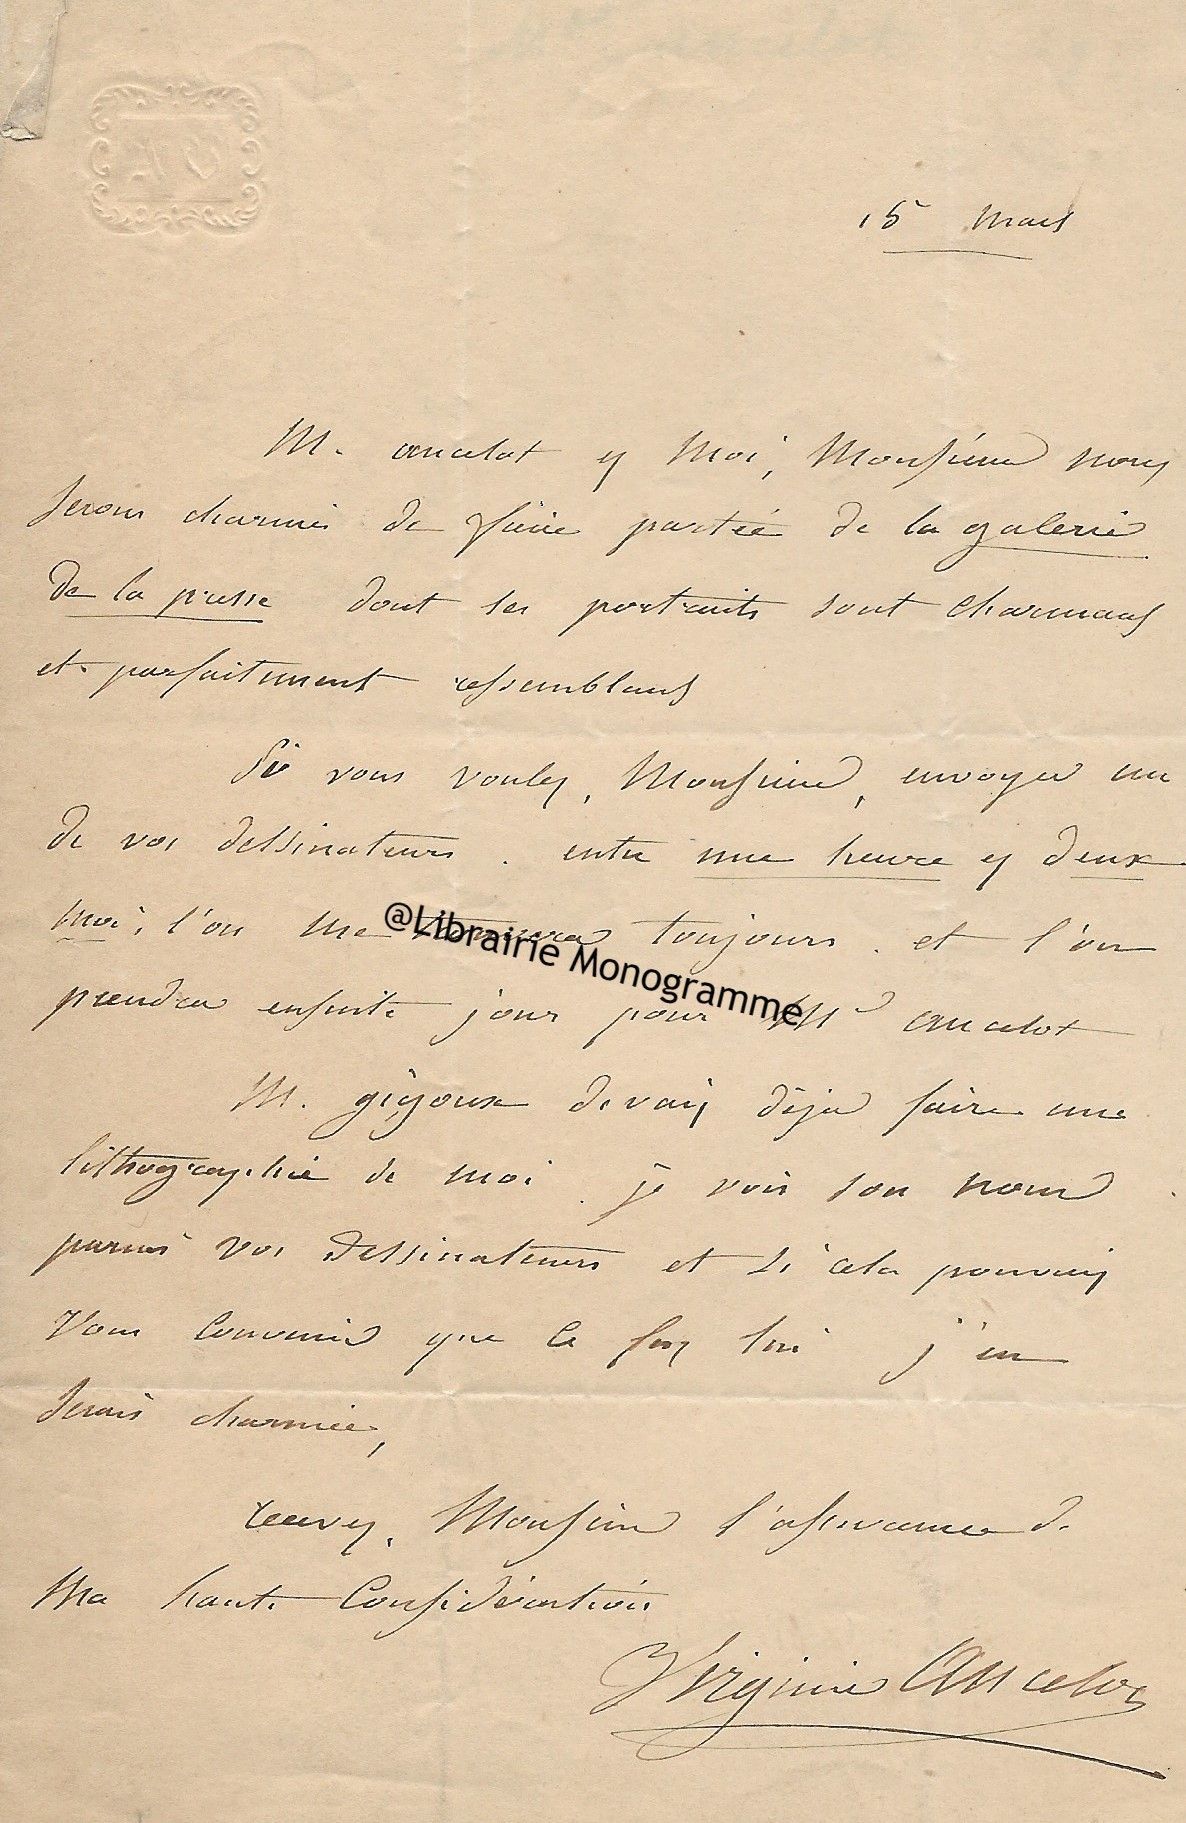 VA
15 Mars
M. ancelot et Moi, Monsieur nous
serons charmés de faire partie de la galerie
de la presse dont les portraits sont charmans
et parfaitement ressemblans
Si vous voulez, Monsieur, envoyer un
de vos dessinateurs. entre une heure et deux
moi, l'on me trouvera toujours. et l'on
prendra ensuite jour pour Mr ancelot
@Librairie Monogramme
M. gigoux devait déja faire une
lithographie de moi. je vois son nom
parmi vos dessinateurs et si cela pouvait
Vous convenir que ce fut lui j'en
serais charmée,
recevez, Monsieur l'assurance de
Ma haute Considération
Virginie Ancelot